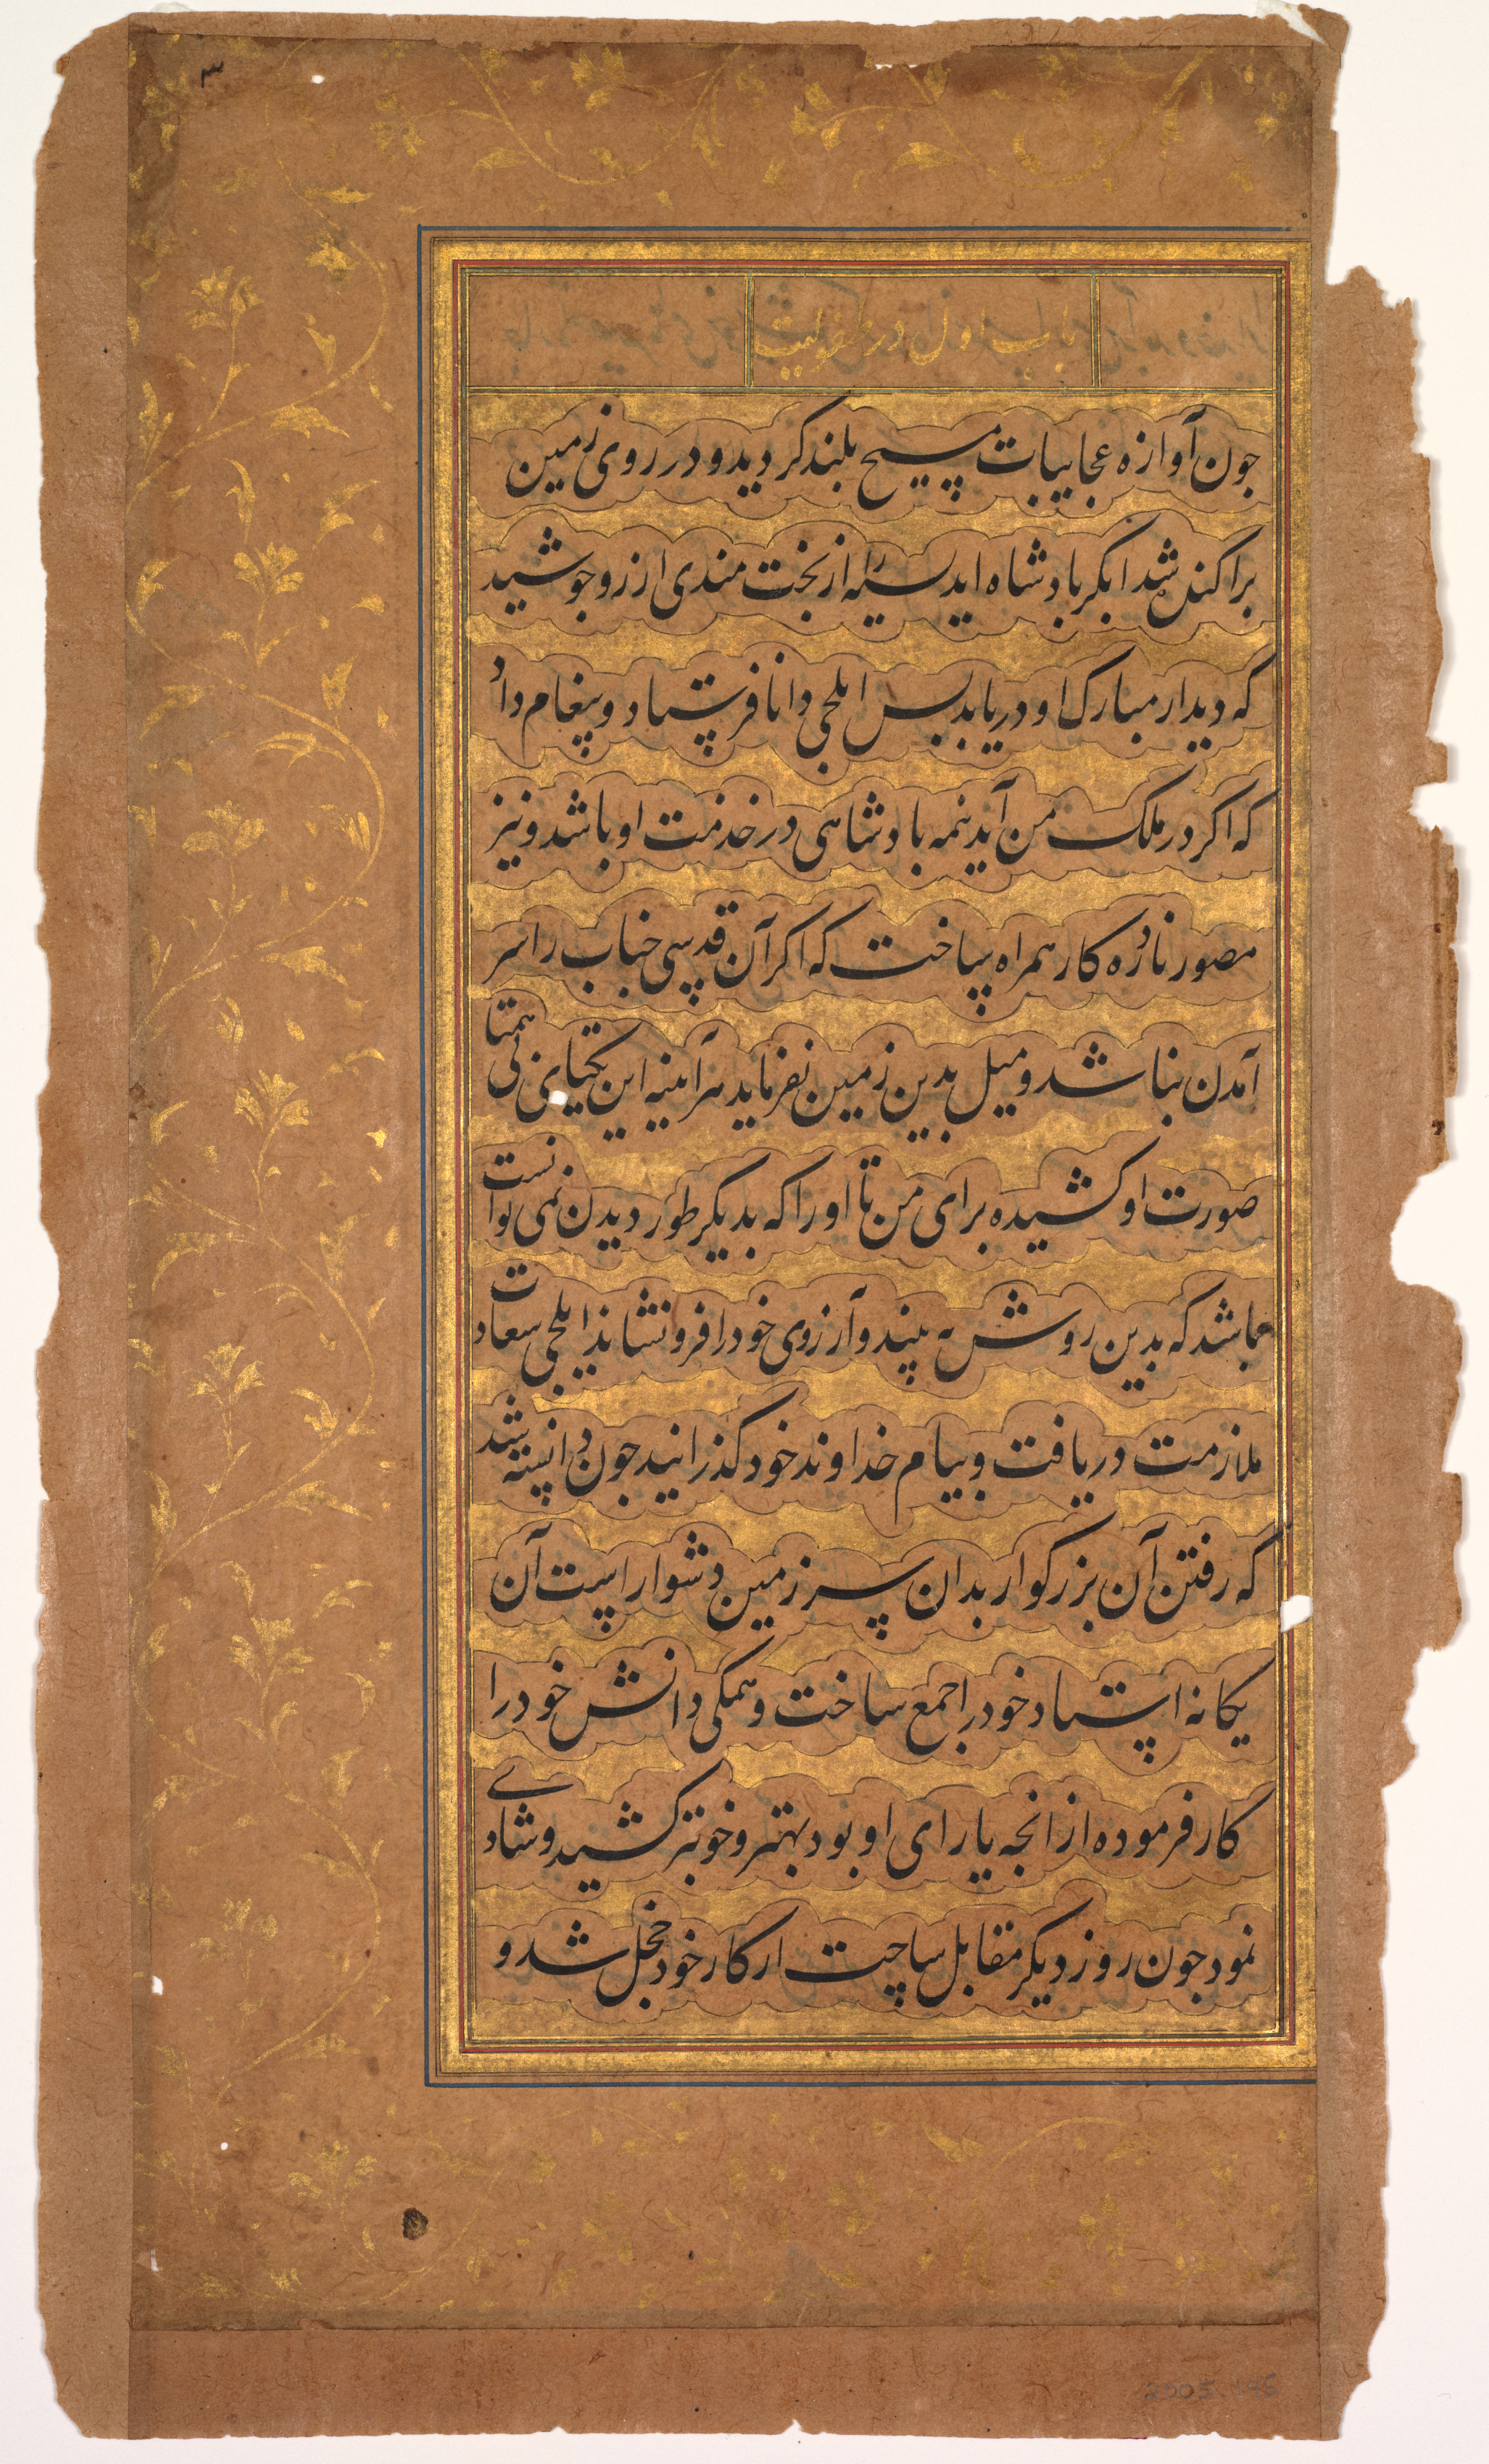 ۳
باب اول در طفولیت
جون آوازه عجایبات مسیح بلند کردید و در روی زمین
براکنده شد ابکر بادشاه ایدیسه را از بخت مندی ارزو جوشید
که دیدار مبارک او دریابد بس ایلجی دانا فرستاد و پیغام داد
که اکر در ملک من آید نیمه بادشاهی در خدمت او باشد و نیز
مصور نادره کار همراه ساخت که اکر آن قدسی جناب را سر
آمدن نباشد و میل بدین زمین نفرماید هر آینه این یکتای بی همتا
صورت او کشیده برای من تا او را که بدیکر طور دیدن نمی توانست
باشد که بدین روش به بیند و آرزوی خود را فرو نشاند ایلجی سعادت
ملازمت دریافت و بیام خداوند خود کذرانید جون دانسته شد
که رفتن آن بزرکوار بدان سرزمین دشوار است آن
یکانه استاد خود را جمع ساخت و همکی دانش خود را
کار فرموده از انجه یارای او بود بهتر و خوبتر کشید و شادی
نمود جون روز دیکر مقابل ساخت از کار خود خجل شد و
2005.145